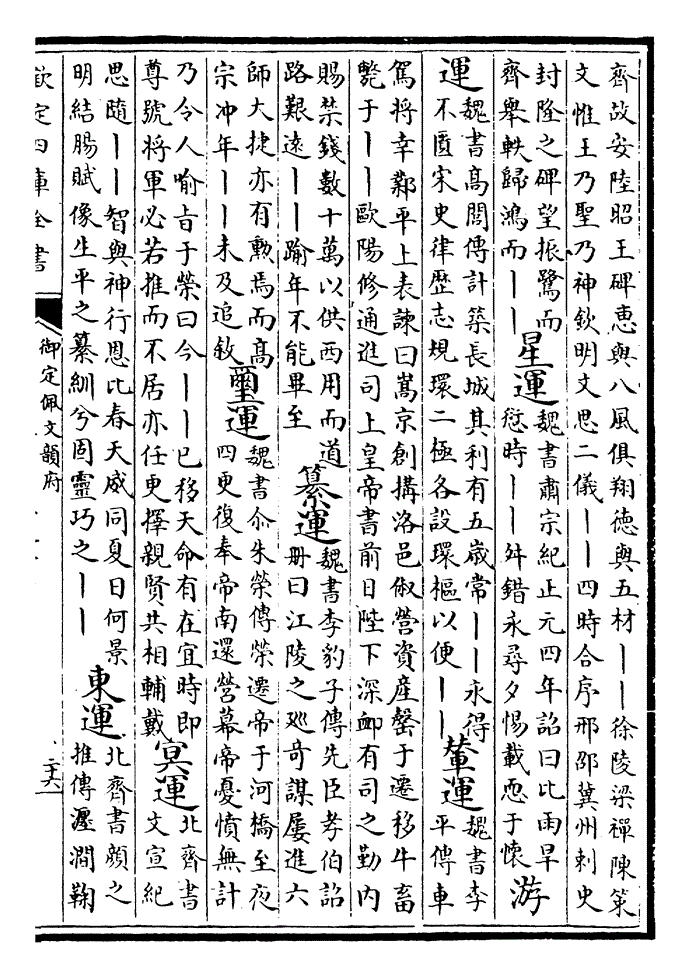 齊故安陸昭王碑惠與八風俱翔德與五材丨丨徐陵梁禪陳策
文惟王乃聖乃神欽明文思二儀丨丨四時合序邢邵冀州刺史
封隆之碑望振鷺而
齊舉軼歸鴻而丨丨
星運
魏書肅宗紀正元四年詔曰比雨旱
愆時丨丨舛錯永尋夕惕載恧于懷
游
運
魏書高閭傳計築長城其利有五歲常丨丨永得
不匱宋史律歷志規環二極各設環樞以便丨丨
輦運
魏書李
平傳車
駕將幸鄴平上表諫曰嵩京創搆洛邑俶營資産罄于遷移牛畜
斃于丨丨歐陽修通進司上皇帝書前日陛下深䘏有司之勤内
賜禁錢數十萬以供西用而道
路艱遠丨丨踰年不能畢至
纂運
魏書李豹子傳先臣孝伯詔
册曰江陵之廵竒謀屢進六
師大捷亦有勲焉而高
宗冲年丨丨未及追敘
璽運
魏書尒朱榮傳榮遷帝于河橋至夜
四更復奉帝南還營幕帝憂憤無計
乃令人喻旨于榮曰今丨丨已移天命有在宜時即
尊號將軍必若推而不居亦任更擇親賢共相輔戴
冥運
北齊書
文宣紀
思隨丨丨智與神行恩比春天威同夏日何景
明結腸賦像生平之纂紃兮固靈巧之丨丨
東運
北齊書顔之
推傳瀍澗鞠
欽定四庫全書
御定佩文韻府
二十六